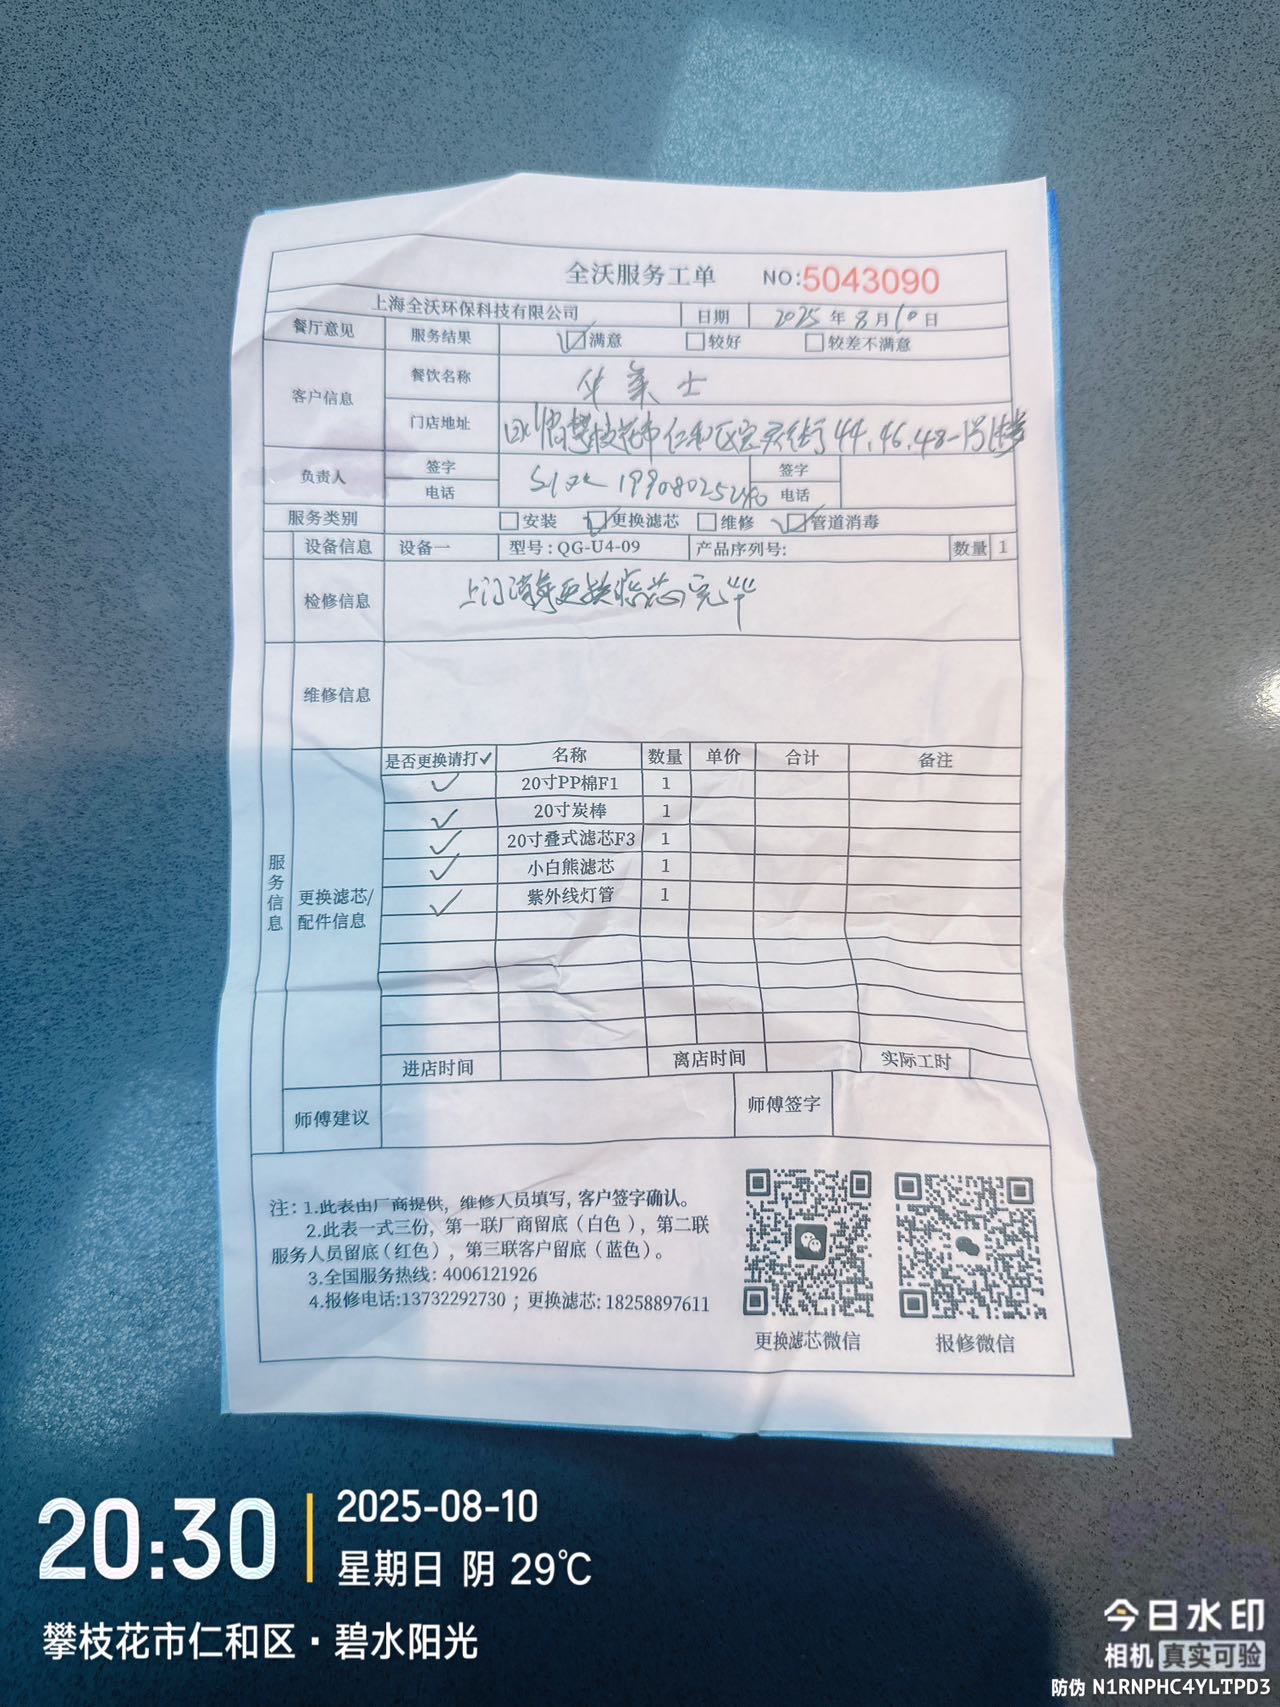 全沃服务工单 NO:5043090
上海全沃环保科技有限公司 日期 2025年8月10日
餐厅意见 服务结果 满意 较好 较差不满意
客户信息 餐饮名称 华莱士
门店地址 四川省攀枝花市仁和区宝灵街44.46.48-1号
负责人 签字 签字
电话 电话
服务类别 安装 更换滤芯 维修 管道消毒
设备信息 设备一 型号:QG-U4-09 产品序列号: 数量 1
检修信息 上门消毒更换滤芯完毕
维修信息
服务信息
更换滤芯/配件信息
是否更换请打✓ 名称 数量 单价 合计 备注
✓ 20寸PP棉F1 1
✓ 20寸炭棒 1
✓ 20寸叠式滤芯F3 1
✓ 小白熊滤芯 1
✓ 紫外线灯管 1
进店时间 离店时间 实际工时
师傅建议 师傅签字
注:1.此表由厂商提供,维修人员填写,客户签字确认。
2.此表一式三份,第一联厂商留底(白色),第二联
服务人员留底(红色),第三联客户留底(蓝色)。
3.全国服务热线:4006121926
4.报修电话:13732292730;更换滤芯:18258897611
更换滤芯微信 报修微信
20:30 2025-08-10
星期日 阴 29℃
攀枝花市仁和区·碧水阳光
今日水印
相机 真实可验
防伪 N1RNPHC4YLTPD3